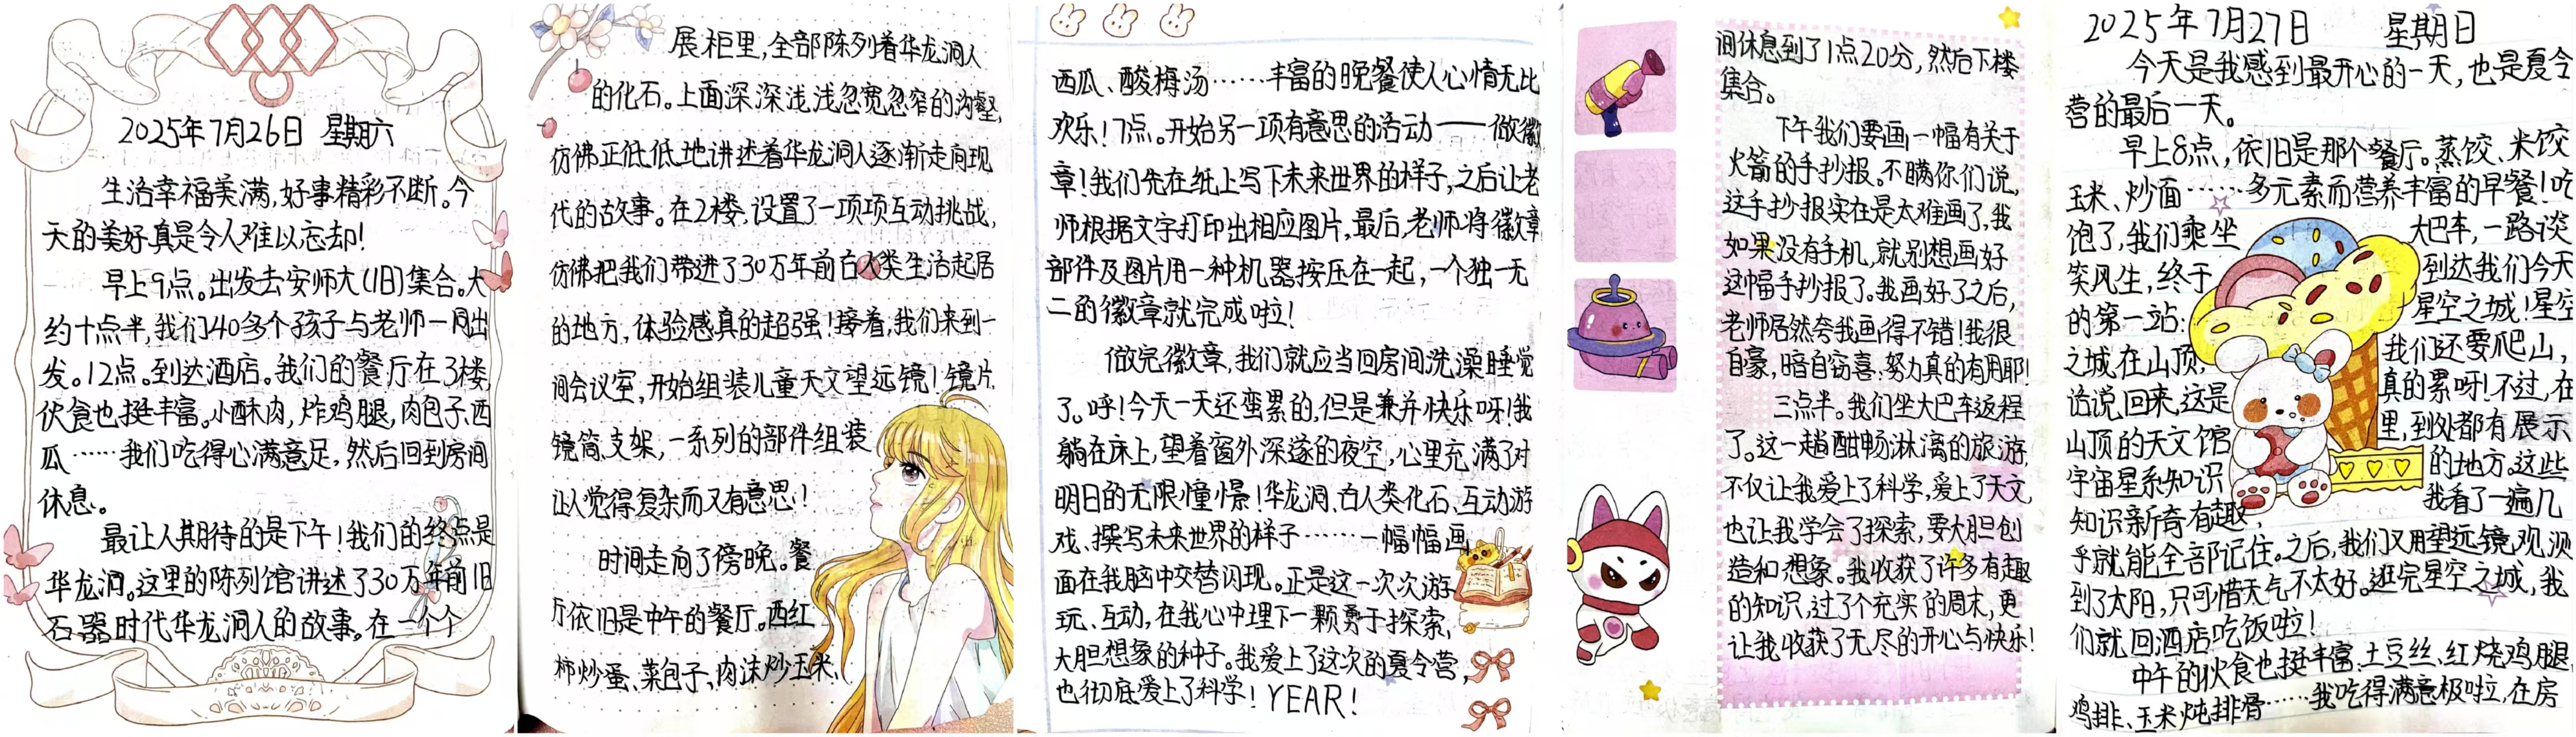 2025年7月26日 星期六
生活幸福美满,好事精彩不断。今
天的美好真是令人难以忘却!
早上9点。出发去安师大(旧)集合。大
约十点半,我们40多个孩子与老师一同出
发。12点。到达酒店。我们的餐厅在3楼,
伙食也挺丰富。小酥肉,炸鸡腿,肉包子,西
瓜……我们吃得心满意足,然后回到房间
休息。
最让人期待的是下午!我们的终点是
华龙洞。这里的陈列馆讲述了30万年前旧
石器时代华龙洞人的故事。在一个个
展柜里,全部陈列着华龙洞人
的化石。上面深深浅浅忽宽忽窄的沟壑,
仿佛正低低地讲述着华龙洞人逐渐走向现
代的故事。在2楼,设置了一项项互动挑战,
仿佛把我们带进了30万年前白人类生活起居
的地方,体验感真的超强!接着,我们来到一
间会议室,开始组装儿童天文望远镜!镜片,
镜筒,支架,一系列的部件组装
让人觉得复杂而又有意思!
时间走向了傍晚。餐
厅依旧是中午的餐厅。西红
柿炒蛋、菜包子、肉沫炒玉米、
西瓜、酸梅汤……丰富的晚餐使人心情无比
欢乐!7点。开始另一项有意思的活动——做徽
章!我们先在纸上写下未来世界的样子,之后让老
师根据文字打印出相应图片,最后,老师将徽章
部件及图片用一种机器按压在一起,一个独一无
二的徽章就完成啦!
做完徽章,我们就应当回房间洗澡睡觉
了。呼!今天一天还蛮累的,但是兼并快乐呀!我
躺在床上,望着窗外深邃的夜空,心里充满了对
明日的无限憧憬!华龙洞、白人类化石、互动游
戏、撰写未来世界的样子……一幅幅画
面在我脑中交替闪现。正是这一次次游
玩、互动,在我心中埋下一颗勇于探索,
大胆想象的种子。我爱上了这次的夏令营,
也彻底爱上了科学!YEAR!
间休息到了1点20分,然后下楼
集合。
下午我们要画一幅有关于
火箭的手抄报。不瞒你们说,
这手抄报实在是太难画了,我
如果没有手机,就别想画好
这幅手抄报了。我画好了之后,
老师居然夸我画得不错!我很
自豪,暗自窃喜,努力真的有用耶!
三点半。我们坐大巴车返程
了。这一趟酣畅淋漓的旅游,
不仅让我爱上了科学,爱上了天文,
也让我学会了探索,要大胆创
造和想象。我收获了许多有趣
的知识,过了个充实的周末,更
让我收获了无尽的开心与快乐!
2025年7月27日 星期日
今天是我感到最开心的一天,也是夏令
营的最后一天。
早上8点,依旧是那个餐厅。蒸饺、米饺
玉米、炒面……多元素而营养丰富的早餐!吃
饱了,我们乘坐大巴车,一路谈
笑风生,终于到达我们今天
的第一站:星空之城!星空
之城在山顶,我们还要爬山,
话说回来,这是真的累呀!不过,在
山顶的天文馆里,到处都有展示
宇宙星系知识的地方。这些
知识新奇有趣,我看了一遍几
乎就能全部记住。之后,我们又用望远镜观测
到了太阳,只可惜天气不太好。逛完星空之城,我
们就回酒店吃饭啦!
中午的伙食也挺丰富,土豆丝,红烧鸡腿,
鸡排、玉米炖排骨……我吃得满意极啦,在房